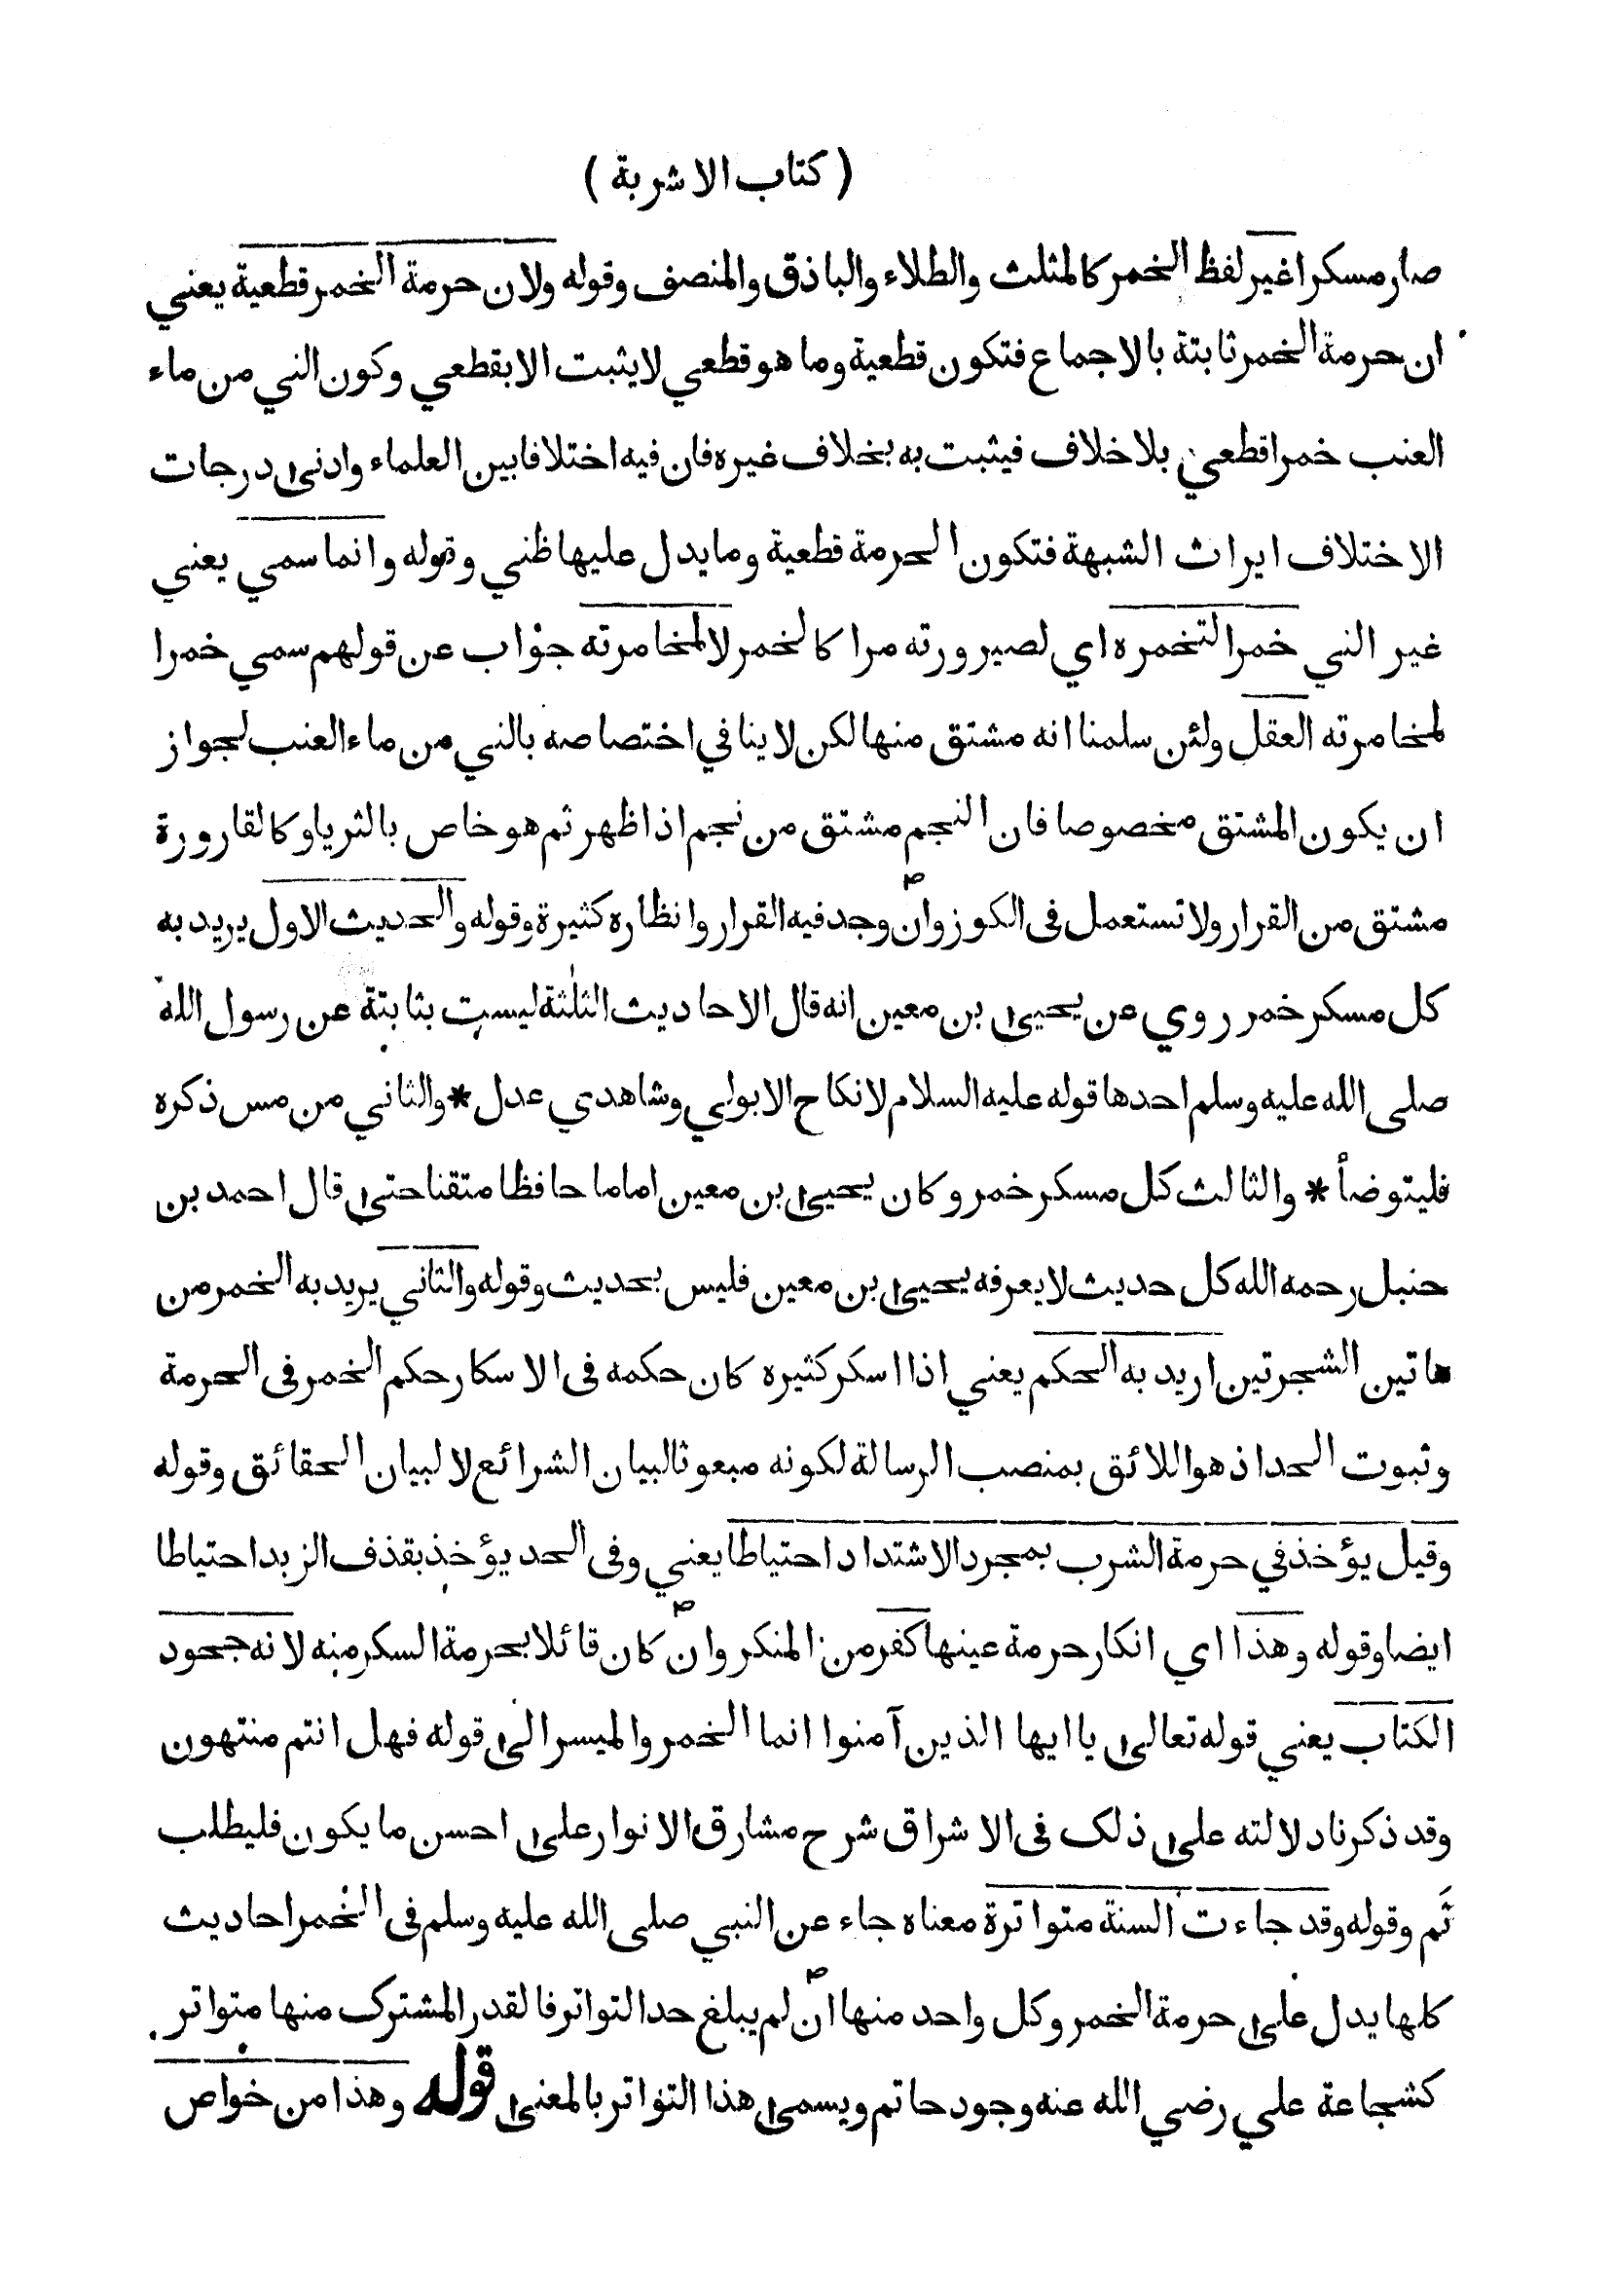 ( كتاب الاشربة )
صار مسكرا غير لفظ الخمر كالمثلث والطلاء والباذق والمنصف وقوله ولان حرمة الخمر قطعية يعني
ان حرمة الخمر ثابتة بالاجماع فتكون قطعية وما هو قطعي لا يثبت الا بقطعي وكون الني من ماء
العنب خمرا قطعي بلا خلاف فيثبت به بخلاف غيره فان فيه اختلافا بين العلماء وادنى درجات
الاختلاف ايراث الشبهة فتكون الحرمة قطعية وما يدل عليها ظني وقوله وانما سمي يعني
غير الني خمرا لتخمره اي لصيرورته مرا كالخمر لا لمخامرته جواب عن قولهم سمي خمرا
لمخامرته العقل ولئن سلمنا انه مشتق منها لكن لا ينافي اختصاصه بالني من ماء العنب لجواز
ان يكون المشتق مخصوصا فان النجم مشتق من نجم اذا ظهر ثم هو خاص بالثريا وكالقارورة
مشتق من القرار ولا تستعمل في الكوز وان وجد فيه القرار وانظاره كثيرة وقوله والحديث الاول يريد به
كل مسكر خمر روي عن يحيى بن معين انه قال الاحاديث الثلثة ليست بثابتة عن رسول الله
صلى الله عليه وسلم احدها قوله عليه السلام لا نكاح الا بولي وشاهدي عدل * والثاني من مس ذكره
فليتوضأ * والثالث كل مسكر خمر وكان يحيى بن معين اماما حافظا متقنا حتى قال احمد بن
حنبل رحمه الله كل حديث لا يعرفه يحيى بن معين فليس بحديث وقوله والثاني يريد به الخمر من
هاتين الشجرتين اريد به الحكم يعني اذا اسكر كثيره كان حكمه في الاسكار حكم الخمر في الحرمة
وثبوت الحد اذ هو اللائق بمنصب الرسالة لكونه مبعوثا لبيان الشرائع لا لبيان الحقائق وقوله
وقيل يؤخذ في حرمة الشرب بمجرد الاشتداد احتياطا يعني وفى الحد يؤخذ بقذف الزبد احتياطا
ايضا وقوله وهذا اي انكار حرمة عينها كفر من المنكر وان كان قائلا بحرمة السكر منه لانه جحود
الكتاب يعني قوله تعالى يا ايها الذين آمنوا انما الخمر والميسر الى قوله فهل انتم منتهون
وقد ذكرنا دلالته على ذلك فى الاشراق شرح مشارق الانوار على احسن ما يكون فليطلب
ثَم وقوله وقد جاءت السنة متواترة معناه جاء عن النبي صلى الله عليه وسلم فى الخمر احاديث
كلها يدل على حرمة الخمر وكل واحد منها ان لم يبلغ حد التواتر فالقدر المشترك منها متواتر
كشجاعة علي رضي الله عنه وجود حاتم ويسمى هذا التواتر بالمعنى قوله وهذا من خواص